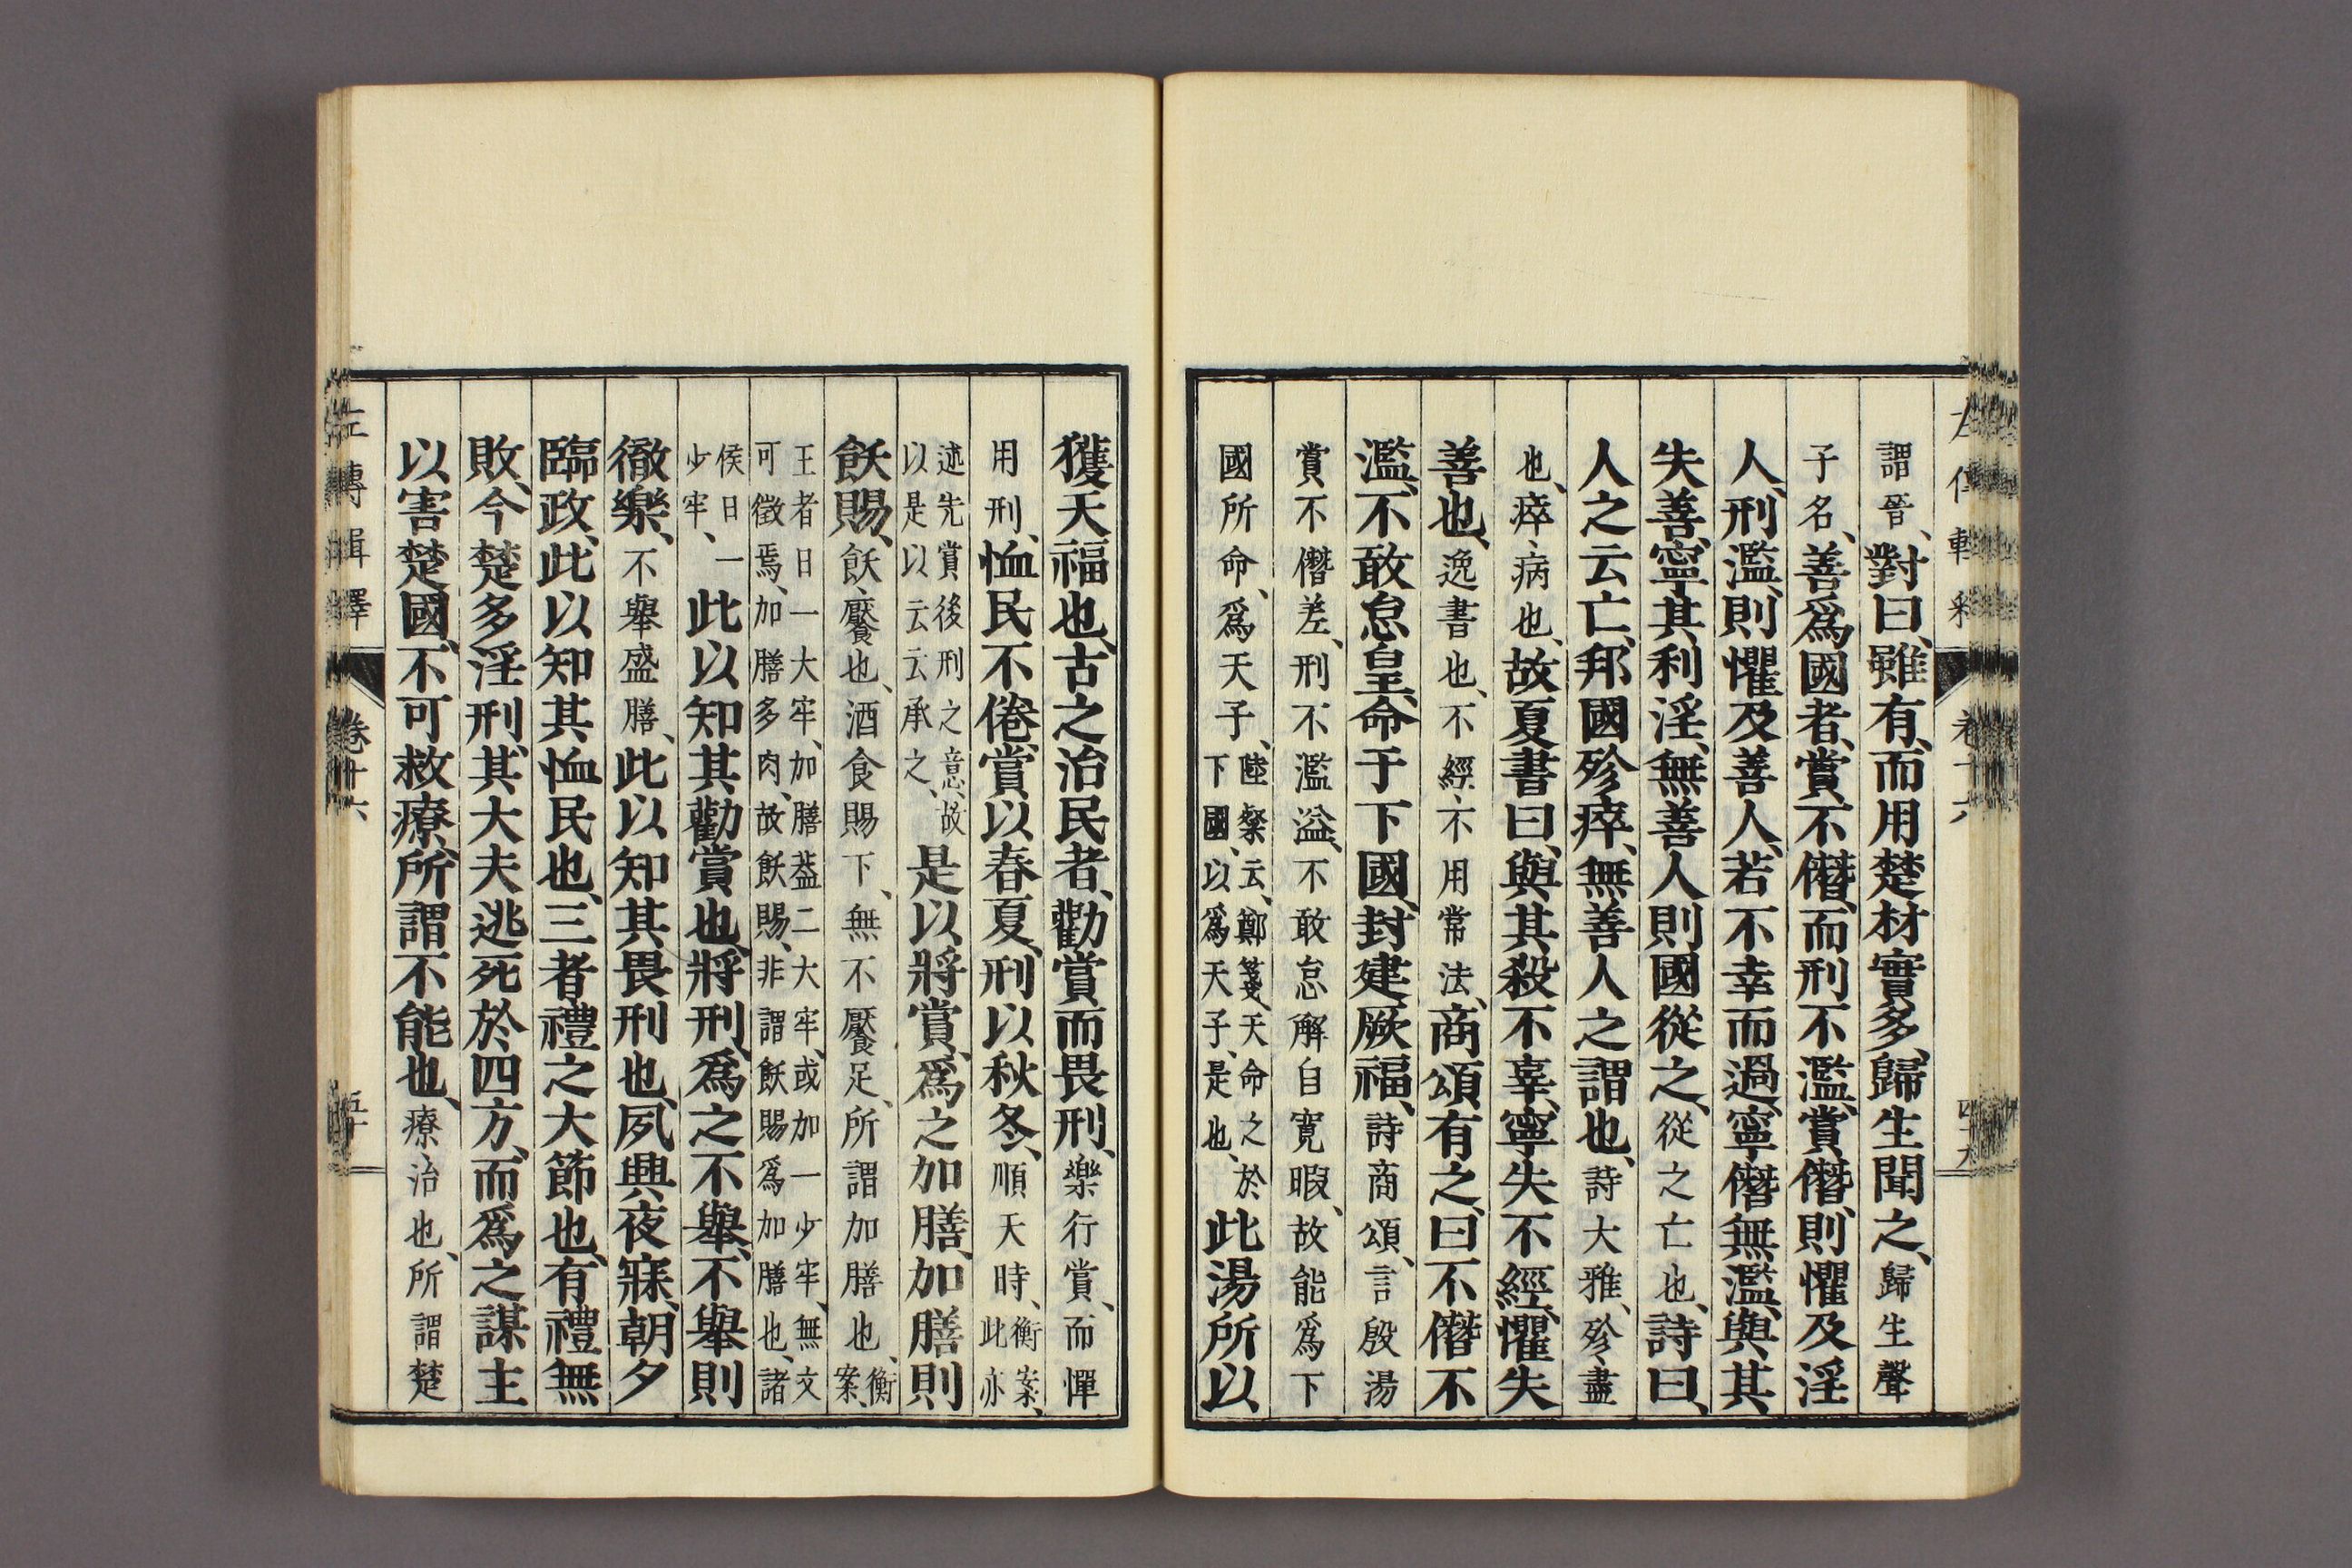 謂晉、對曰、雖有、而用楚材實多、歸生聞之、歸生聲
子名、善爲國者、賞不僭、而刑不濫、賞僭、則懼及淫
人、刑濫、則懼及善人、若不幸而過、寧僭無濫、與其
失善、寧其利淫、無善人則國從之、從之亡也、詩曰、
人之云亡、邦國殄瘁、無善人之謂也、詩大雅、殄、盡
也、瘁、病也、故夏書曰、與其殺不辜、寧失不經、懼失
善也、逸書也、不經、不用常法、商頌有之、曰、不僭不
濫、不敢怠皇、命于下國、封建厥福、詩商頌、言殷湯
賞不僭差、刑不濫溢、不敢怠解自寬暇、故能爲下
國所命、爲天子、陸粲云、鄭箋、天命之於下國、以爲天子、是也、此湯所以
獲天福也、古之治民者、勸賞而畏刑、樂行賞、而憚
用刑、恤民不倦、賞以春夏、刑以秋冬、順天時、衡案、此亦
述先賞後刑之意、故以是以云云承之、是以將賞、爲之加膳、加膳則
飫賜、飫、饜也、酒食賜下、無不饜足、所謂加膳也、衡案、
王者日一大牢、加膳蓋二大牢、或加一少牢、無文可徵焉、加膳多肉、故飫賜、非謂飫賜爲加膳也、諸
侯日一少牢、此以知其勸賞也、將刑、爲之不舉、不舉則
徹樂、不舉盛膳、此以知其畏刑也、夙興夜寐、朝夕
臨政、此以知其恤民也、三者禮之大節也、有禮無
敗、今楚多淫刑、其大夫逃死於四方、而爲之謀主
以害楚國、不可救療、所謂不能也、療、治也、所謂楚
左傳輯釋 卷十六 五十